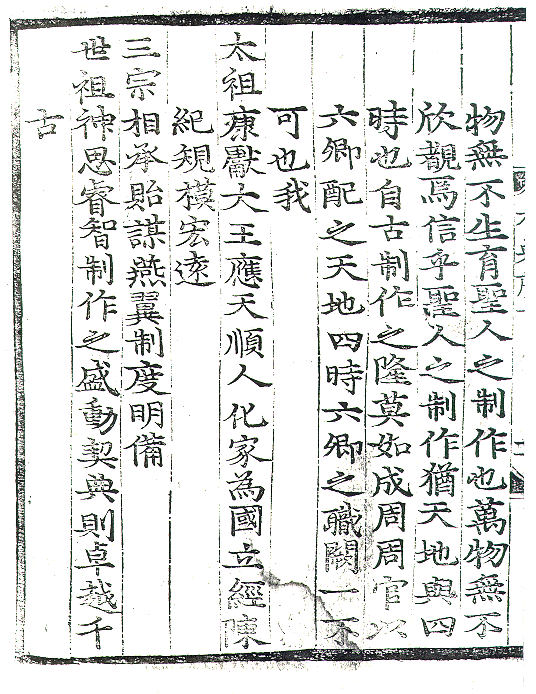 物無不生育聖人之制作也萬物無不
欣覩焉信乎聖人之制作猶天地與四
時也自古制作之隆莫如成周周官以
六卿配之天地四時六卿之職闕一不
可也我
太祖康獻大王應天順人化家為國立經陳
紀規模宏遠
三宗相承貽謀燕翼制度明備
世祖神思睿智制作之盛動契典則卓越千
古